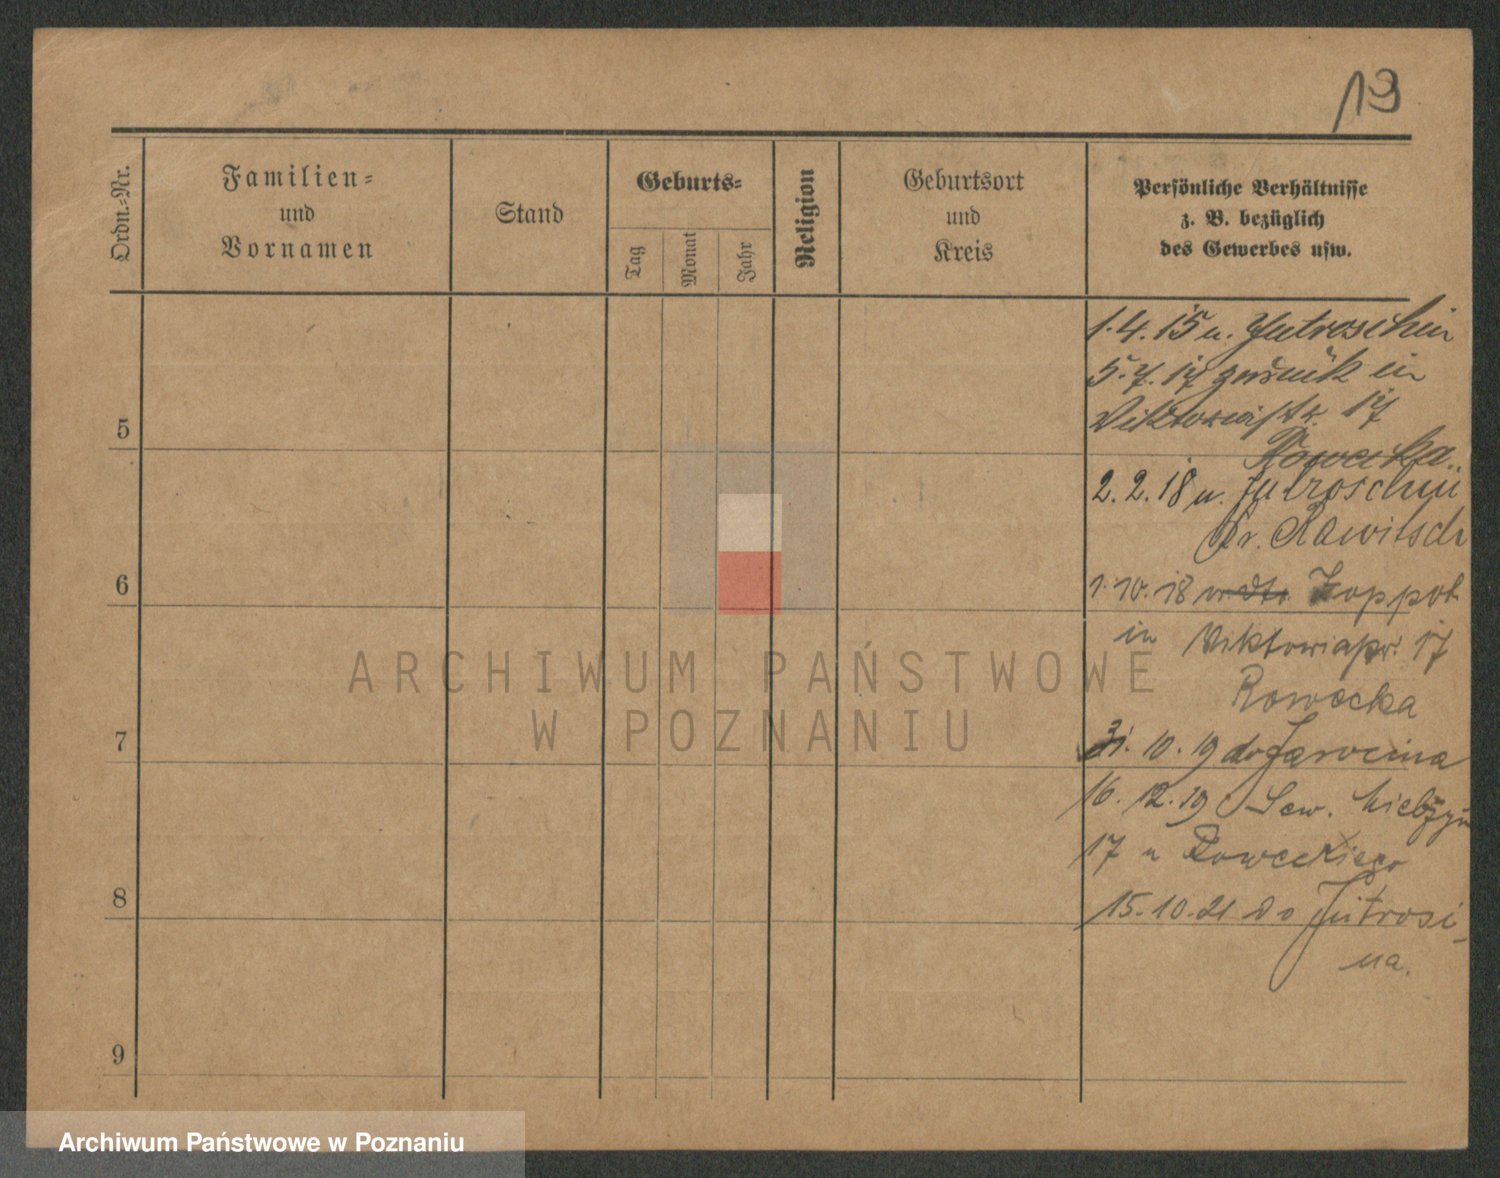 19
Ordn.-Nr.
Familien-
und
Vornamen
Stand
Geburts-
Tag
Monat
Jahr
Religion
Geburtsort
und
Kreis
Persönliche Verhältnisse
z. B. bezüglich
des Gewerbes usw.
1.4.15 n. Jutroschin
5.7.17 zurück in
Viktoriastr. 17
Rowecka.
5
2.2.18 n. Jutroschin
Kr. Rawitsch
6
1.10.18 Zoppot
in Viktoriastr. 17
Rowecka
7
31.10.19 do Jarocina
16.12.19 Sew. Mielżyń
17 u Roweckiego
8
15.10.21 do Jutrosi-
na.
9
ARCHIWUM PAŃSTWOWE
W POZNANIU
Archiwum Państwowe w Poznaniu